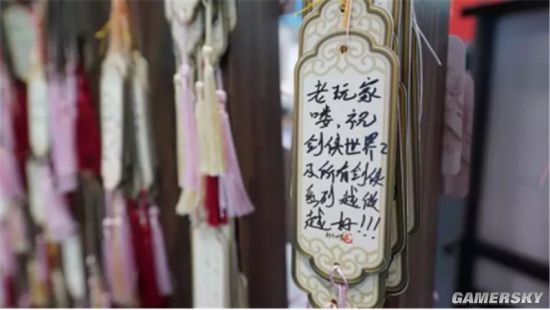 老玩家
喽、祝
剑侠世界2
及所有剑侠
系列越做
越好!!!
GAMERSKY